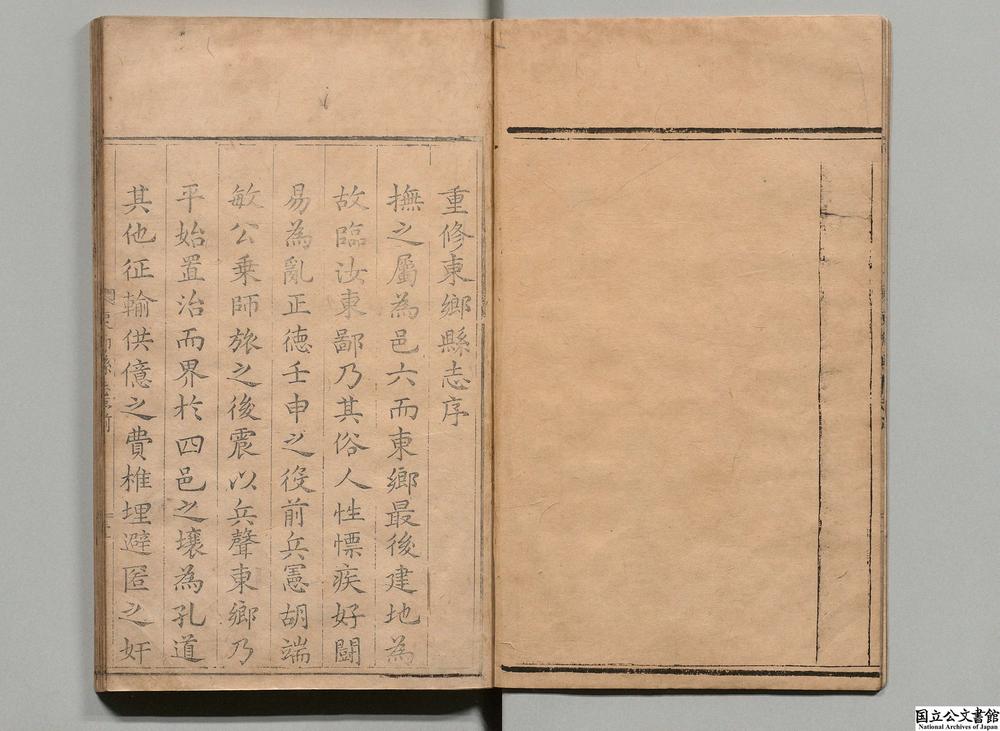 重修東鄉縣志序
撫之屬為邑六而東鄉最後建地為
故臨汝東鄙乃其俗人性慓疾好鬪
易為亂正德壬申之役前兵憲胡端
敏公乗師旅之後震以兵聲東鄉乃
平始置治而界於四邑之壤為孔道
其他征輸供億之費椎埋避匿之奸
国立公文書館
National Archives of Japan